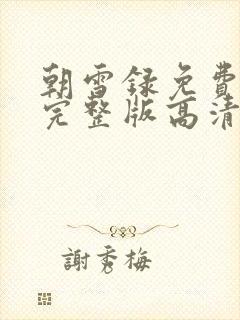 朝雪録免費
完整版高清
謝秀梅